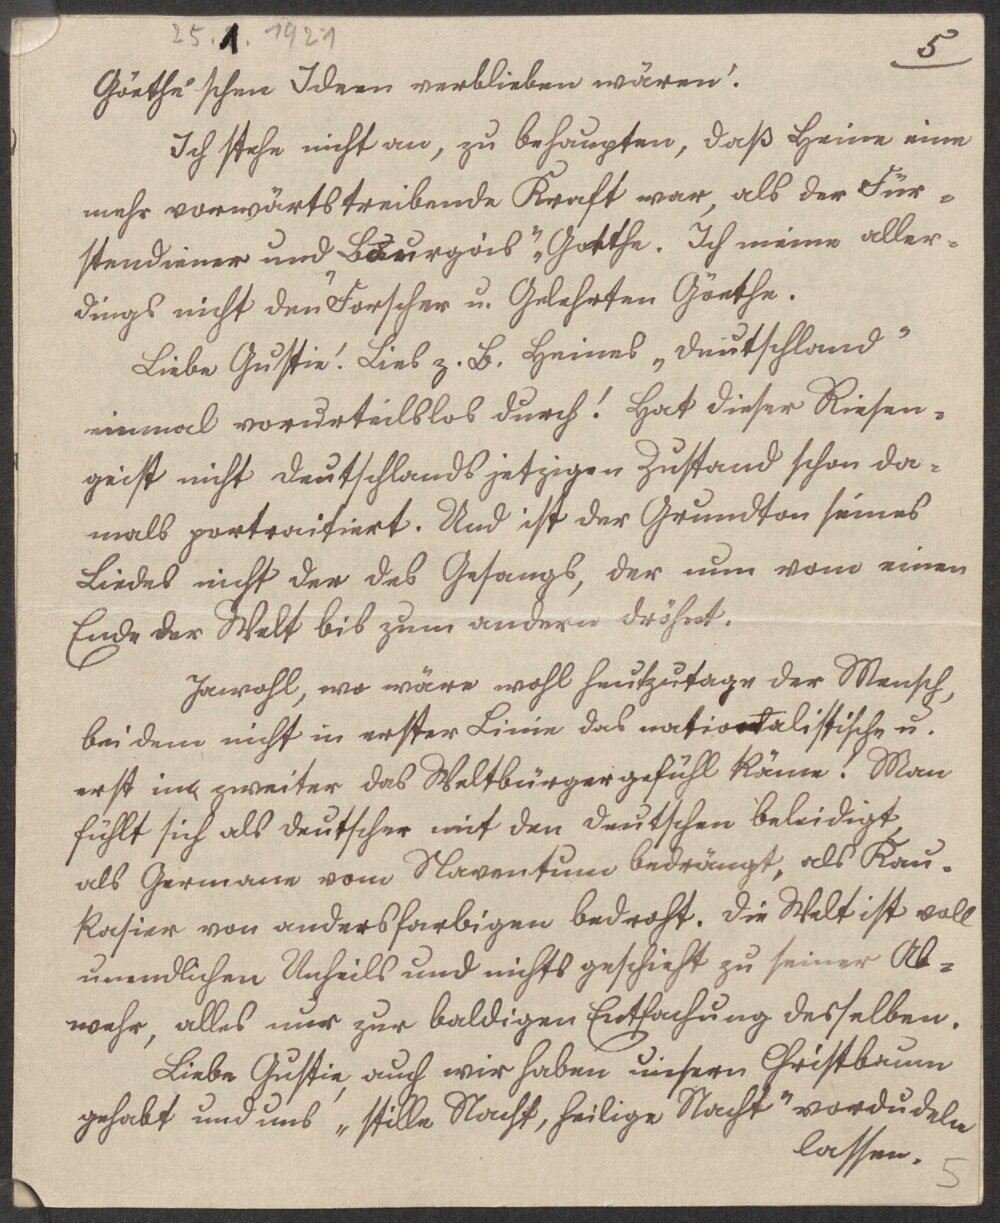 25.1.1921
5
Göethe'schen Ideen verblieben wären!
Ich stehe nicht an, zu behaupten, daß Heine eine
mehr vorwärtstreibende Kraft war, als der Für-
stendiener und Bourgois „Goethe". Ich meine aller-
dings nicht den „Forscher u. Gelehrten Göethe.
Liebe Gustie! Lies z. B. Heines „Deutschland"
einmal vorurteilslos durch! Hat dieser Riesen-
geist nicht Deutschlands jetzigen Zustand schon da-
mals portraitiert. Und ist der Grundton seines
Liedes nicht der des Gesangs, der nun vom einen
Ende der Welt bis zum andern dröhnt.
Jawohl, wo wäre wohl heutzutage der Mensch,
bei dem nicht in erster Linie das nationalistische u.
erst in zweiter das Weltbürgergefühl käme! Man
fühlt sich als Deutscher mit den Deutschen beleidigt,
als Germane vom Slaventum bedrängt, als Kau-
kasier von andersfarbigen bedroht. Die Welt ist voll
unendlichen Unheils und nichts geschieht zu seiner Ab-
wehr, alles nur zur baldigen Entfachung desselben.
Liebe Gustie, auch wir haben unsern Christbaum
gehabt und uns „stille Nacht, heilige Nacht" vordudeln
lassen.
5